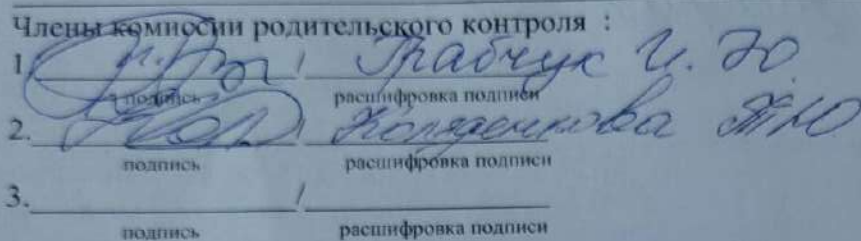 Члены комиссии родительского контроля :
1. / Грабчук И. Ю
подпись расшифровка подписи
2. / Коляденкова Т Ю
подпись расшифровка подписи
3. /
подпись расшифровка подписи